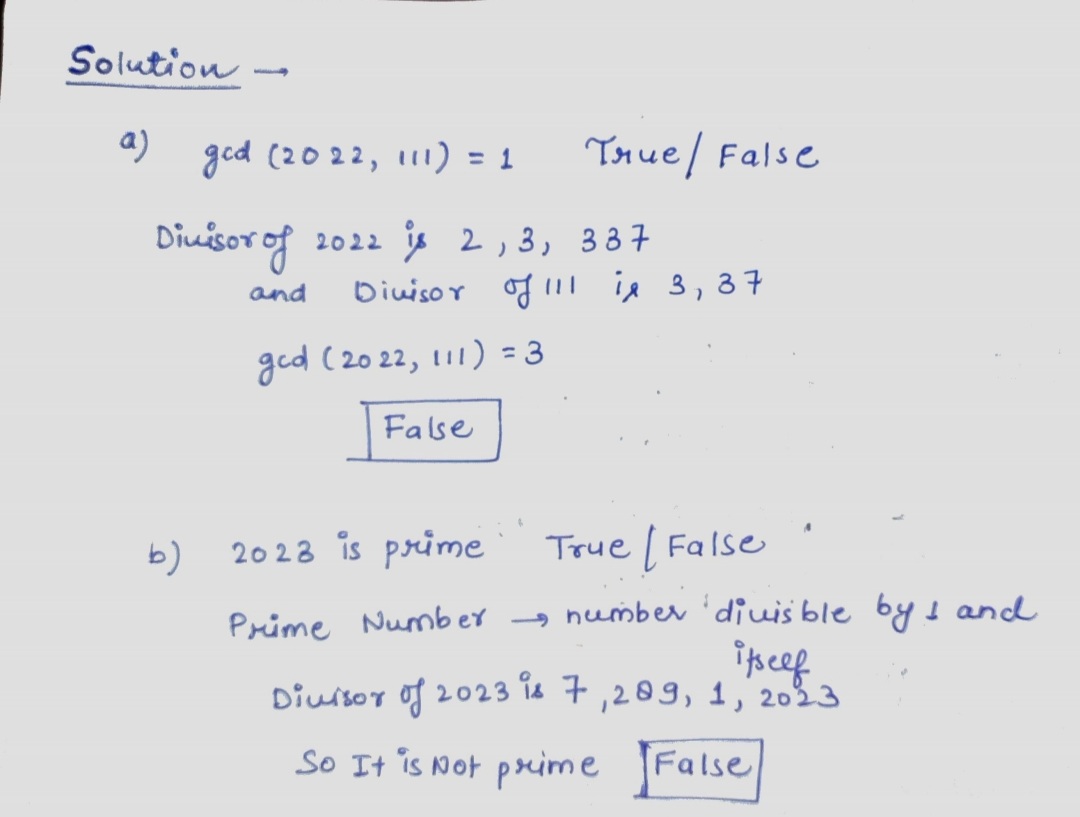 Solution →
a) gcd (2022, 111) = 1 True/ False
Divisor of 2022 is 2, 3, 337
and Divisor of 111 is 3, 37
gcd (2022, 111) = 3
False
b) 2023 is prime True/False
Prime Number → number divisble by 1 and
itself
Divisor of 2023 is 7, 289, 1, 2023
So It is Not prime False